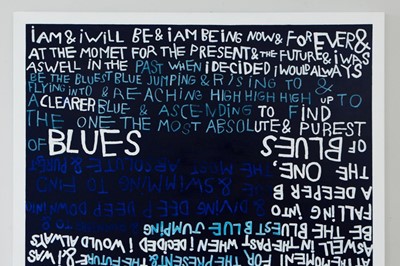 i AM & i WILL BE & i AM BEING NOW & FOR EVER &
AT THE MOMET FOR THE PRESENT & THE FUTURE & i WAS
AS WELL IN THE PAST WHEN i DECIDED i WOULD ALWAYS
BE THE BLUEST BLUE JUMPING & RISING TO &
FLYING INTO & REACHING HIGH HIGH HIGH UP TO
A CLEARER BLUE & ASCENDING TO FIND
THE ONE THE MOST ABSOLUTE & PUREST
OF BLUES
OF BLUES
THE ONE, ABSOLUTE & PUREST
A DEEPER B & SWIMMING TO FIND
FALLING INTO DIVING DEEP DEEP DOWN
BE THE BLUEST BLUE JUMPING
AS WELL IN THE PAST WHEN I DECIDED I WOULD ALWAYS
AT THE MOMENT THE PRESENT & THE & WAS